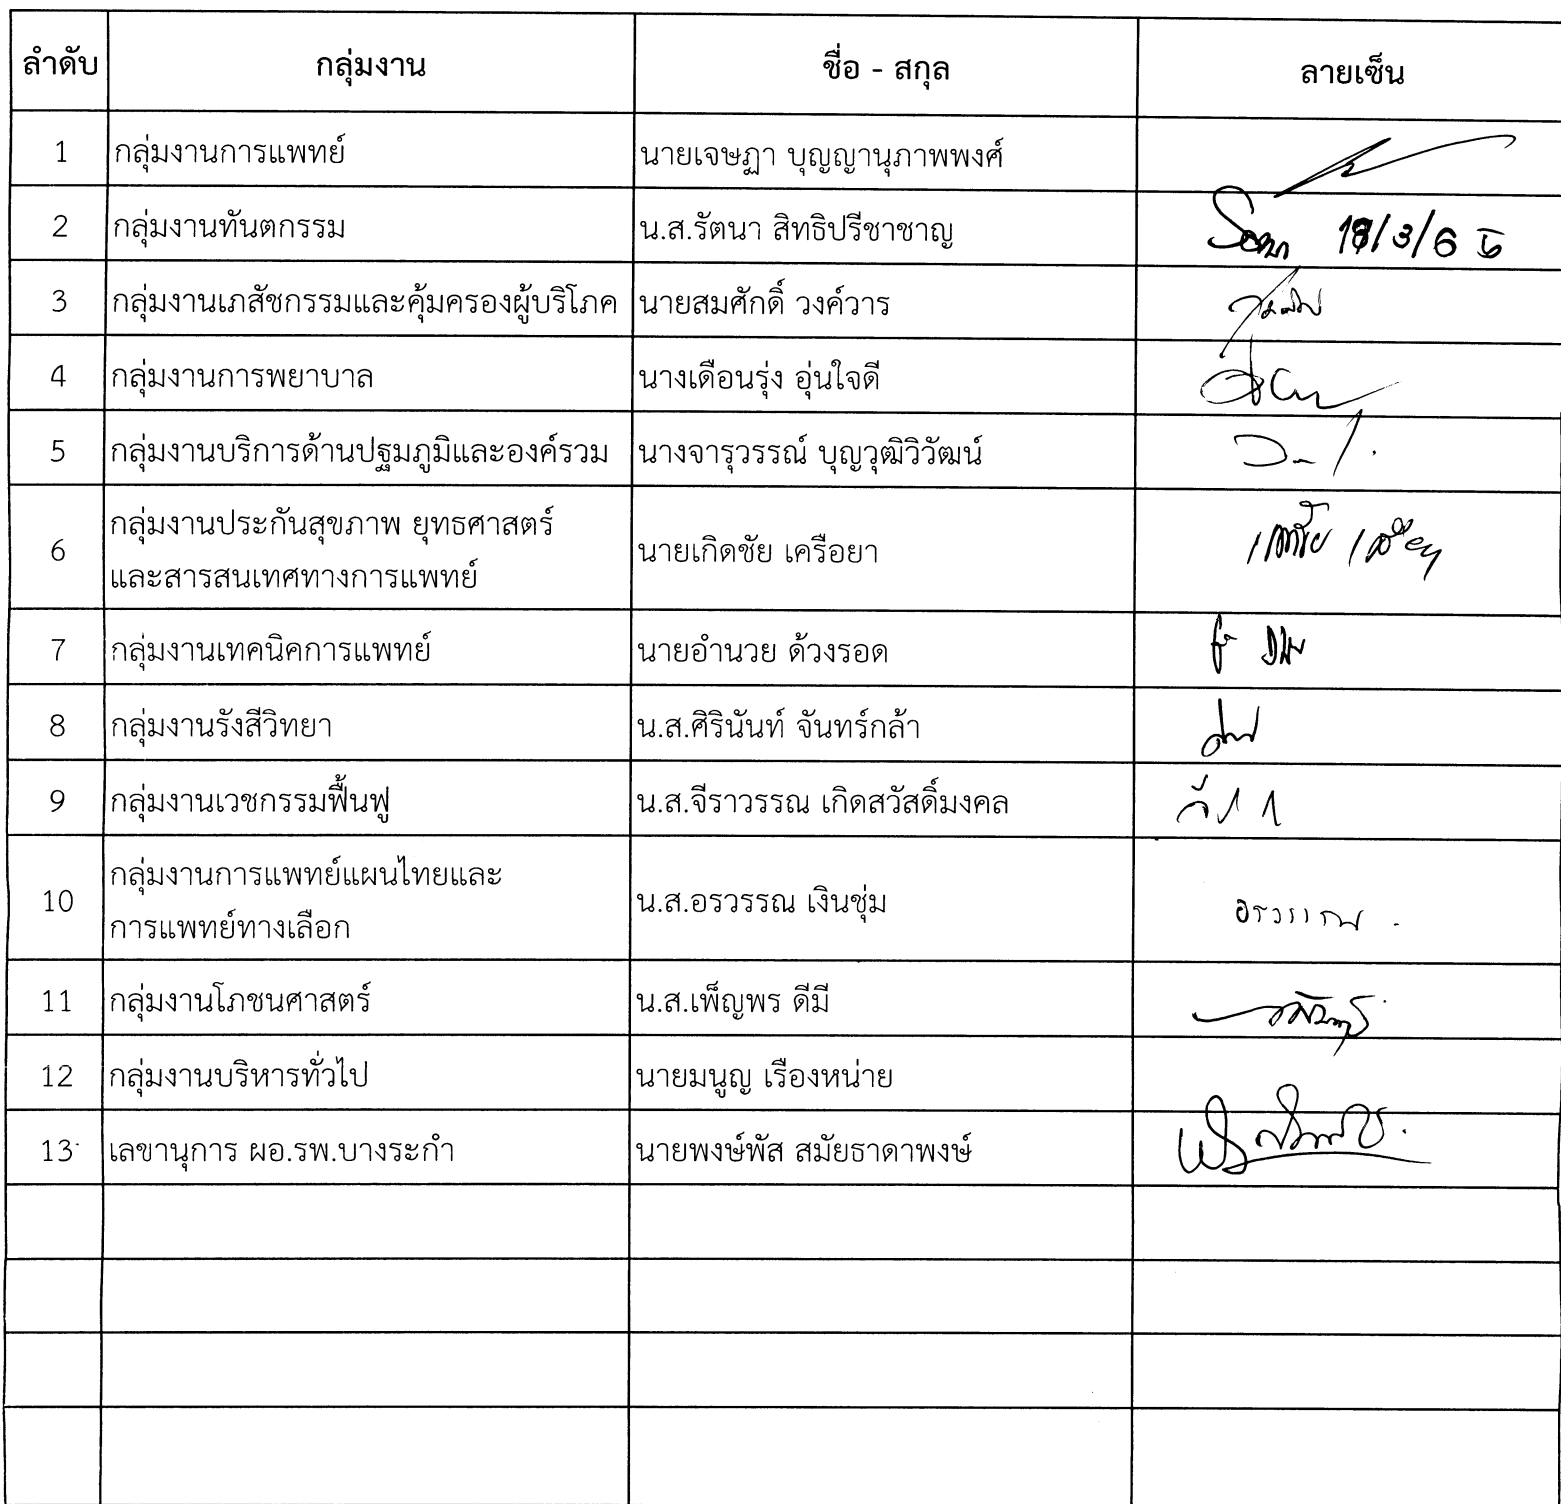 ลำดับ กลุ่มงาน ชื่อ - สกุล ลายเซ็น
1 กลุ่มงานการแพทย์ นายเจษฎา บุญญานุภาพพงศ์
2 กลุ่มงานทันตกรรม น.ส.รัตนา สิทธิปรีชาชาญ
3 กลุ่มงานเภสัชกรรมและคุ้มครองผู้บริโภค นายสมศักดิ์ วงค์วาร
4 กลุ่มงานการพยาบาล นางเดือนรุ่ง อุ่นใจดี
5 กลุ่มงานบริการด้านปฐมภูมิและองค์รวม นางจารุวรรณ์ บุญวุฒิวิวัฒน์
6 กลุ่มงานประกันสุขภาพ ยุทธศาสตร์
และสารสนเทศทางการแพทย์ นายเกิดชัย เครือยา
7 กลุ่มงานเทคนิคการแพทย์ นายอำนวย ด้วงรอด
8 กลุ่มงานรังสีวิทยา น.ส.ศิรินันท์ จันทร์กล้า
9 กลุ่มงานเวชกรรมฟื้นฟู น.ส.จีราวรรณ เกิดสวัสดิ์มงคล
10 กลุ่มงานการแพทย์แผนไทยและ
การแพทย์ทางเลือก น.ส.อรวรรณ เงินชุ่ม อรวรรณ
11 กลุ่มงานโภชนศาสตร์ น.ส.เพ็ญพร ดีมี
12 กลุ่มงานบริหารทั่วไป นายมนูญ เรืองหน่าย
13 เลขานุการ ผอ.รพ.บางระกำ นายพงษ์พัส สมัยธาดาพงษ์